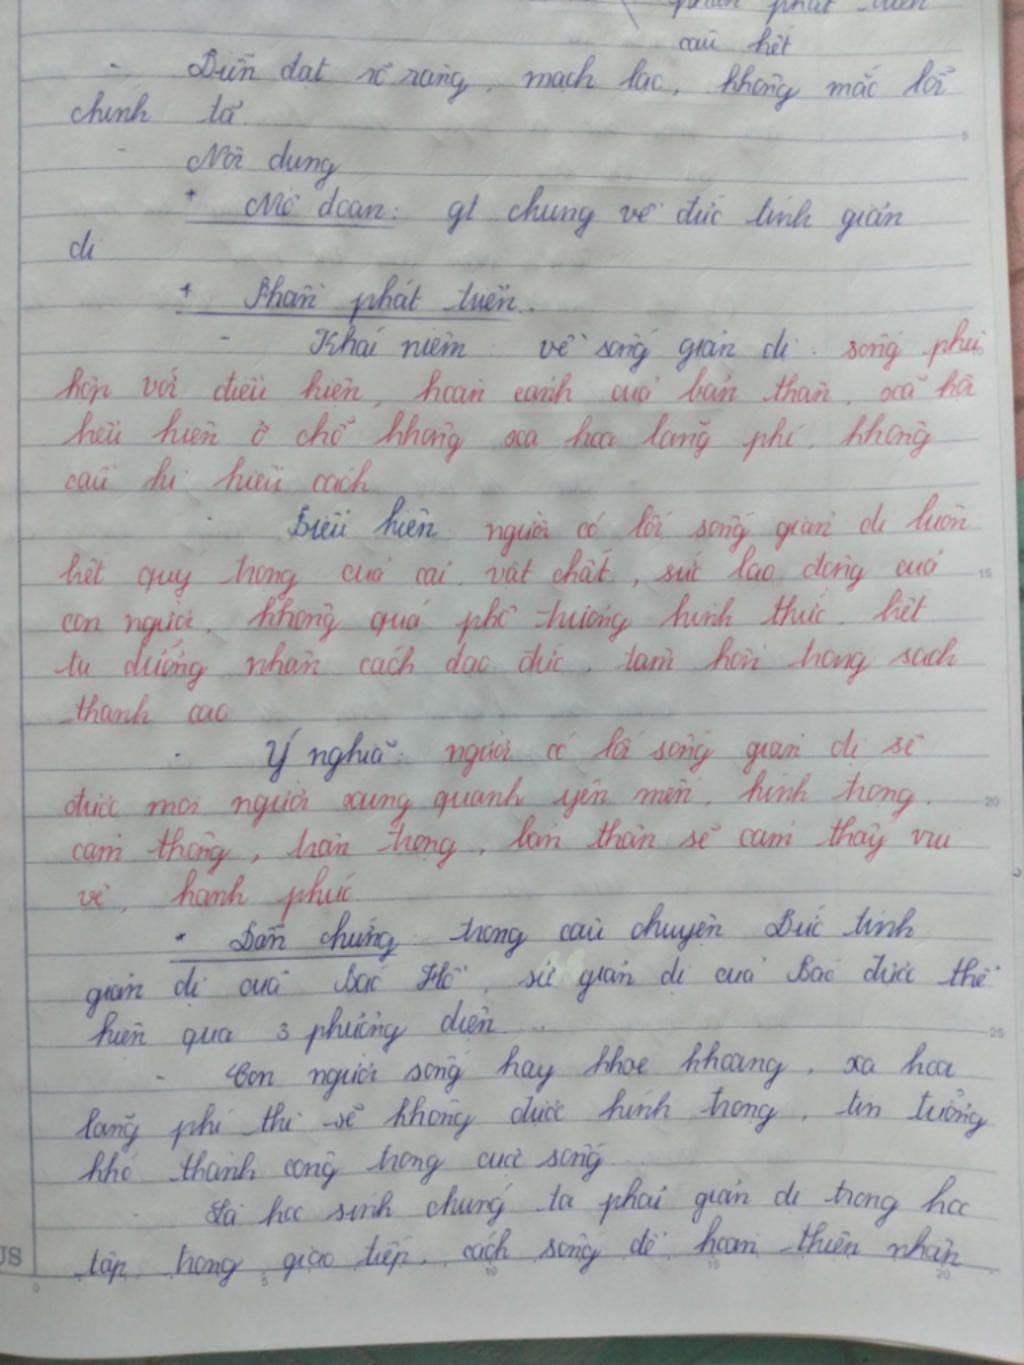 phần phát triển
câu hết
- Diễn đạt rõ ràng, mạch lạc, không mắc lỗi
chính tả
- Nội dung
+ Mở đoạn: gt chung về đức tính giản
dị
+ Phần phát triển.
- Khái niệm về sống giản dị: sống phù
hợp với điều kiện, hoàn cảnh của bản thân, xã hội
biểu hiện ở chỗ không xa hoa lãng phí, không
cầu kì kiểu cách
Biểu hiện người có lối sống giản dị luôn
biết quý trọng của cải, vật chất, sức lao động của
con người, không quá phô trương hình thức, biết
tu dưỡng nhân cách đạo đức, tâm hồn trong sạch
thanh cao
- Ý nghĩa: người có lối sống giản dị sẽ
được mọi người xung quanh yên mến, kính trọng,
cảm thông, trân trọng, bản thân sẽ cảm thấy vui
vẻ, hạnh phúc
- Dẫn chứng trong câu chuyện Đức tính
giản dị của Bác Hồ, sự giản dị của Bác được thể
hiện qua 3 phương diện..
- Con người sống hay khoe khoang, xa hoa
lãng phí thì sẽ không được kính trọng, tin tưởng
khó thành công trong cuộc sống
Là học sinh chúng ta phải giản dị trong học
tập, trong giao tiếp, cách sống để hoàn thiện nhân